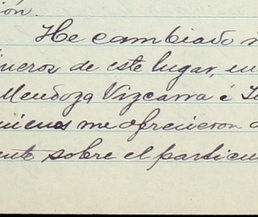 ión.
He cambiado
neros de este lugar, en
Mendoza Vizcarra é
quienes me ofrecieron
ente sobre el particu